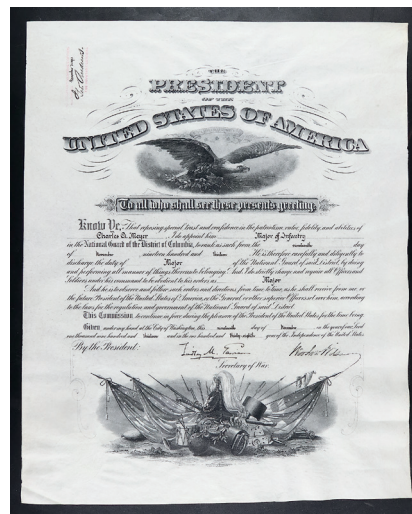 THE
PRESIDENT
OF THE
UNITED STATES OF AMERICA
To all who shall see these presents greeting,
Know Ye, That reposing special trust and confidence in the patriotism, valor, fidelity and abilities of
Charles G. Meyer I do appoint him Major of Infantry
in the National Guard of the District of Columbia, to rank as such from the nineteenth day
of November nineteen hundred and thirteen He is therefore carefully and diligently to
discharge the duty of Major of the National Guard of said District, by doing
and performing all manner of things thereunto belonging. And I do strictly charge and require all Officers and
Soldiers under his command to be obedient to his orders as Major
And he is to observe and follow such orders and directions from time to time, as he shall receive from me, or
the future President of the United States of America, or the General or other superior Officers set over him, according
to the laws for the regulation and government of the National Guard of said District.
This Commission to continue in force during the pleasure of the President of the United States for the time being.
Given under my hand at the City of Washington, this nineteenth day of November in the year of our Lord
one thousand nine hundred and thirteen and in the one hundred and thirty-eighth year of the Independence of the United States.
By the President:
Secretary of War.